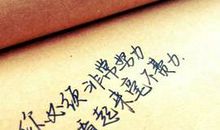 你必须非常努力
看起来毫不费力.